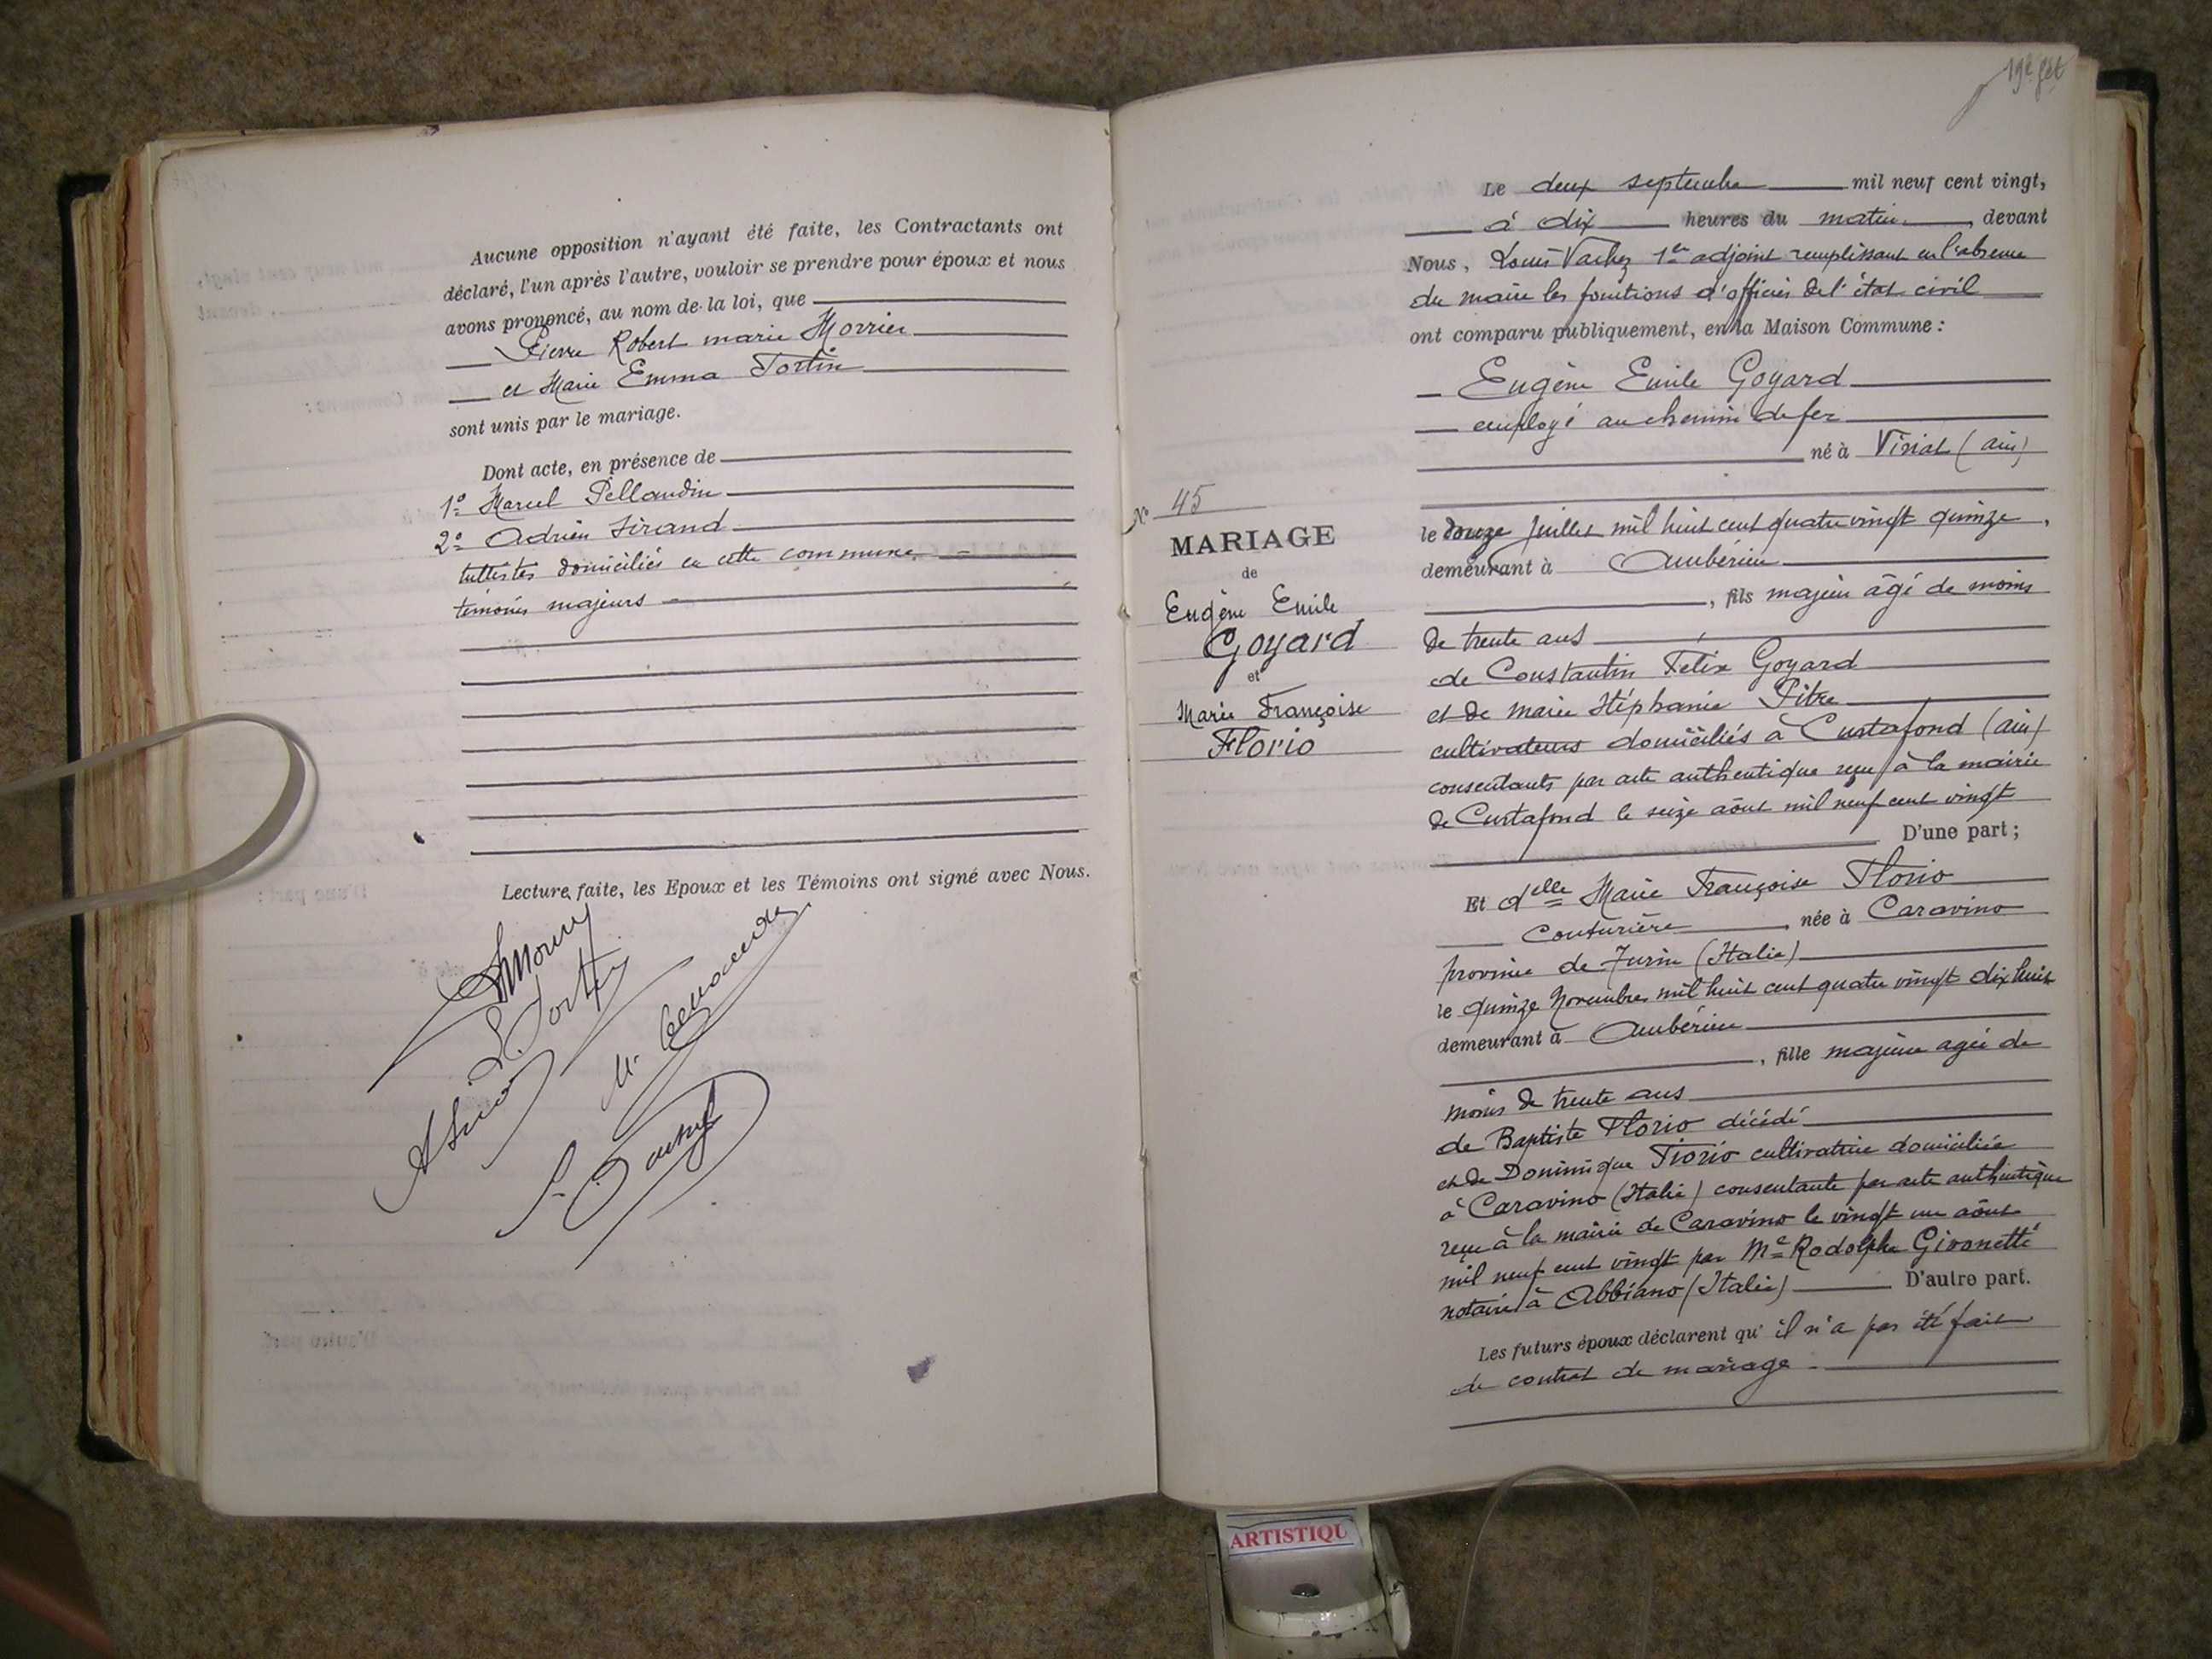 Aucune opposition n'ayant été faite, les Contractants ont
déclaré, l'un après l'autre, vouloir se prendre pour époux et nous
avons prononcé, au nom de la loi, que
Pierre Robert marie Morrier
et Marie Emma Tortin
sont unis par le mariage.
Dont acte, en présence de
1º Marcel Pellaudin
2º Adrien Sirand
tullistes domiciliés en cette commune
témoins majeurs
Lecture faite, les Epoux et les Témoins ont signé avec Nous.
Le deux septembre mil neuf cent vingt,
à dix heures du matin, devant
Nous, Louis Vachez 1er adjoint remplissant en l'absence
du maire les fonctions d'officier de l'état civil
ont comparu publiquement, en la Maison Commune :
Eugène Emile Goyard
employé au chemin de fer
né à Viriat (ain)
Nº 45
MARIAGE
de
Eugène Emile
Goyard
et
Marie Françoise
Florio
le douze juillet mil huit cent quatre vingt quinze,
demeurant à Ambérieu
, fils majeur âgé de moins
de trente ans
de Constantin Félix Goyard
et de marie Stéphanie Pitre
cultivateurs domiciliés à Curtafond (ain)
consentants par acte authentique reçu à la mairie
de Curtafond le seize août mil neuf cent vingt
D'une part ;
Et delle Marie Françoise Florio
Couturière, née à Caravino
province de Turin (Italie)
le quinze Novembre mil huit cent quatre vingt dix huit
demeurant à Ambérieu
, fille majeure agée de
moins de trente ans
de Baptiste Florio décédé
et de Dominique Fiorio cultivatrice domiciliée
à Caravino (Italie) consentante par acte authentique
reçu à la mairie de Caravino le vingt un août
mil neuf cent vingt par Me Rodolphe Gironetté
notaire à Abbiano (Italie) D'autre part.
Les futurs époux déclarent qu'il n'a pas été fait
de contrat de mariage
ARTISTIQU